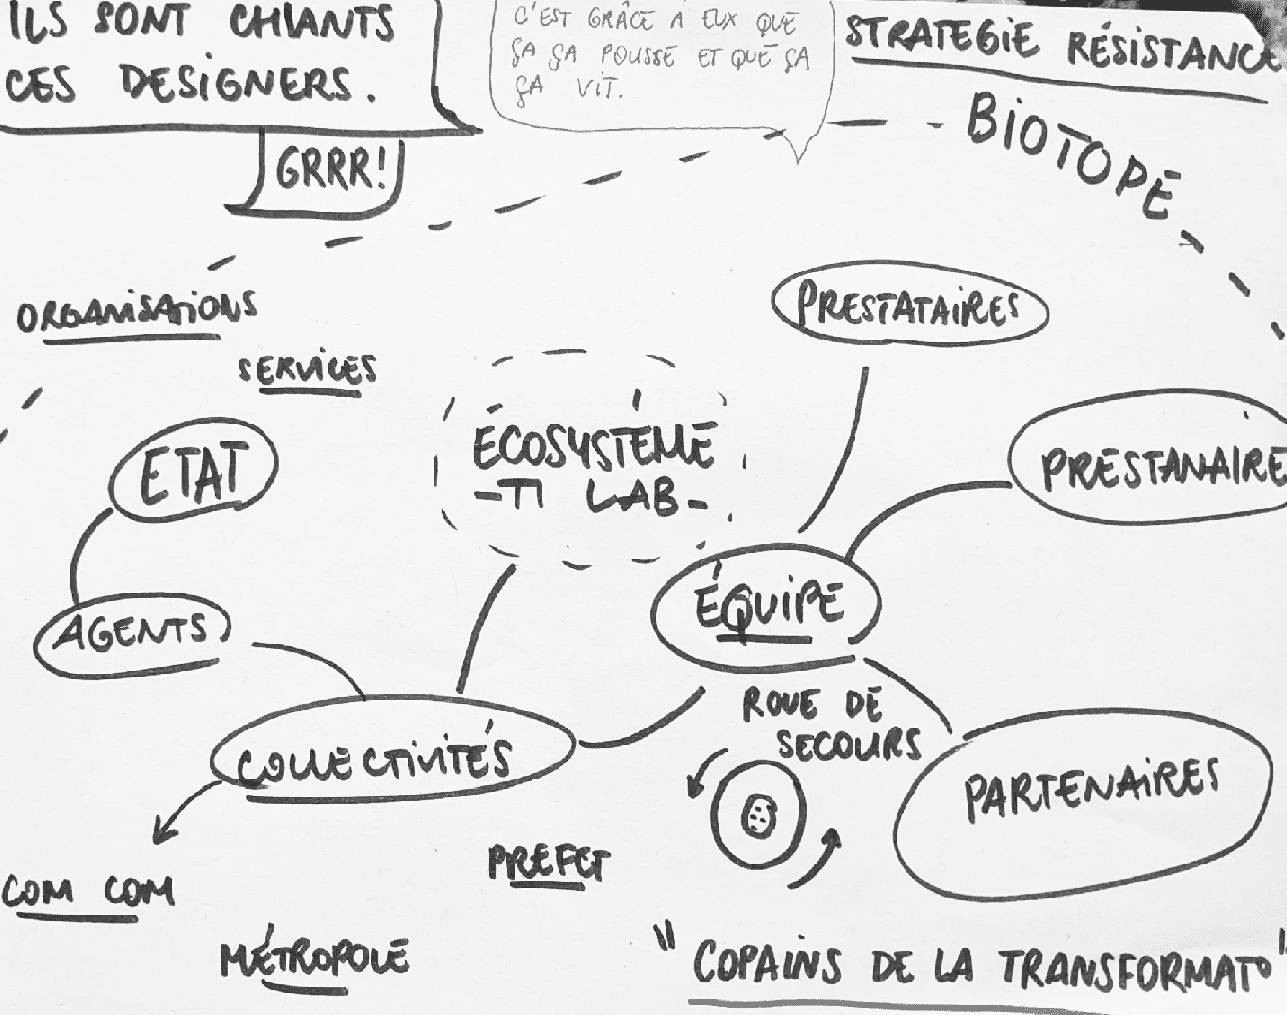 ILS SONT CHIANTS
CES DESIGNERS.
GRRR!
C'EST GRÂCE À EUX QUE
ÇA ÇA POUSSE ET QUE ÇA
ÇA VIT.
STRATEGIE RÉSISTANCE
BIOTOPE
ORGANISATIONS
SERVICES
PRESTATAIRES
ÉCOSYSTÉME
-TI LAB-
ETAT
PRESTANAIRE
AGENTS
ÉQUIPE
COLLECTIVITÉS
ROUE DE
SECOURS
PARTENAIRES
COM COM
PREFET
MÉTROPOLE
"COPAINS DE LA TRANSFORMATO"